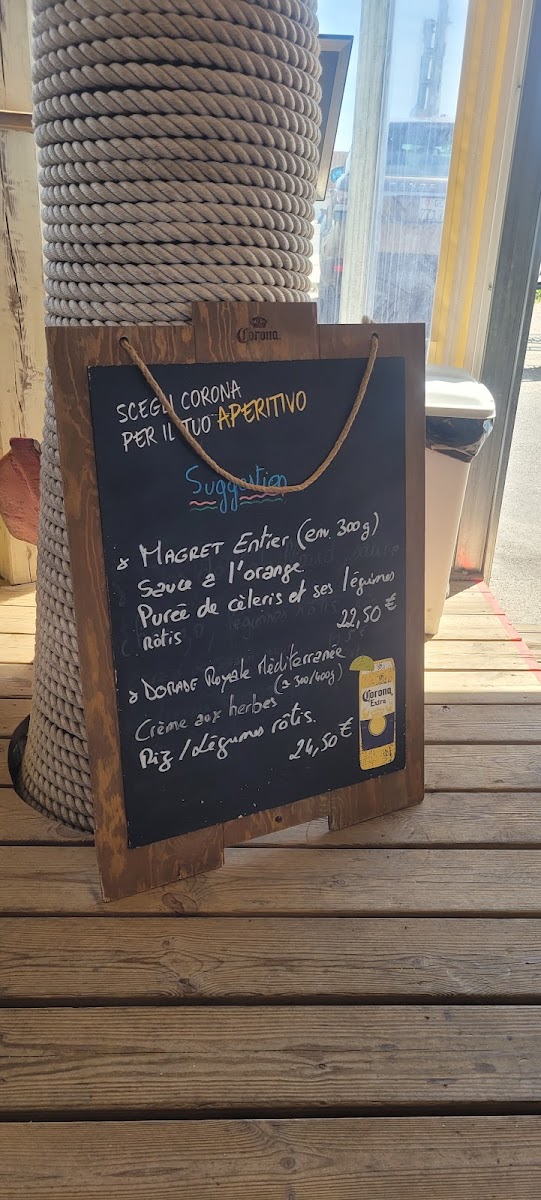 Corona
SCEGLI CORONA
PER IL TUO APERITIVO
Suggestion
MAGRET Entier (env. 300g)
Sauce a l'orange
Purée de cèleris et ses légumes
rôtis
22,50 €
DORADE Royale Méditerranée
(± 300/400g)
Crème aux herbes
Riz / Légumes rôtis.
24,50 €
Corona
Extra